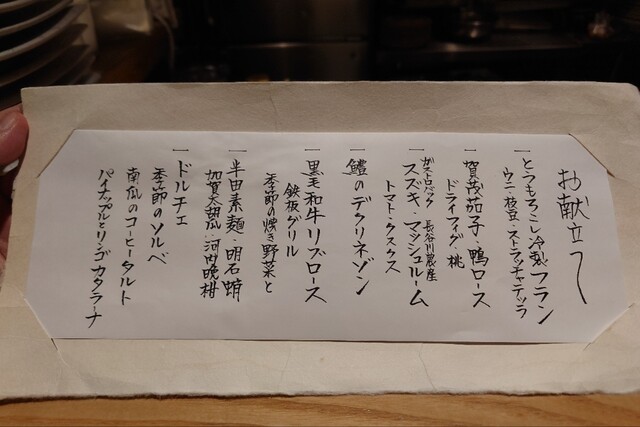 お献立
一 とうもろこし冷製フラン
ウニ・枝豆・ストラッチャテッラ
一 賀茂茄子・鴨ロース
ドライフィグ・桃
一 スズキ・マッシュルーム
ガストロバック 長谷川農産
トマト・クスクス
一 鱧のデクリネゾン
一 黒毛和牛リブロース
鉄板グリル
季節の焼き野菜と
一 半田素麺・明石蛸
加賀太胡瓜・河内晩柑
一 ドルチェ
季節のソルベ
南瓜のコーヒータルト
パイナップルとリンゴ カタラーナ